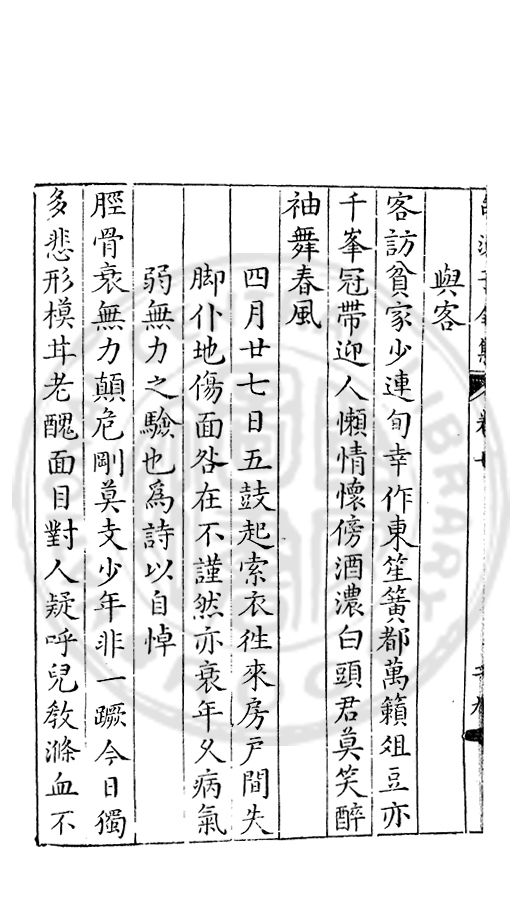 與客
客訪貧家少連旬幸作東笙簧都萬籟俎豆亦
千峯冠帶迎人懶情懷傍酒濃白頭君莫笑醉
袖舞春風
四月廿七日五鼓起索衣徃來房戶間失
脚仆地傷面咎在不謹然亦衰年久病氣
弱無力之驗也爲詩以自悼
脛骨衰無力顛危剛莫支少年非一蹶今日獨
多悲形模苸老醜面目對人疑呼兒敎滌血不